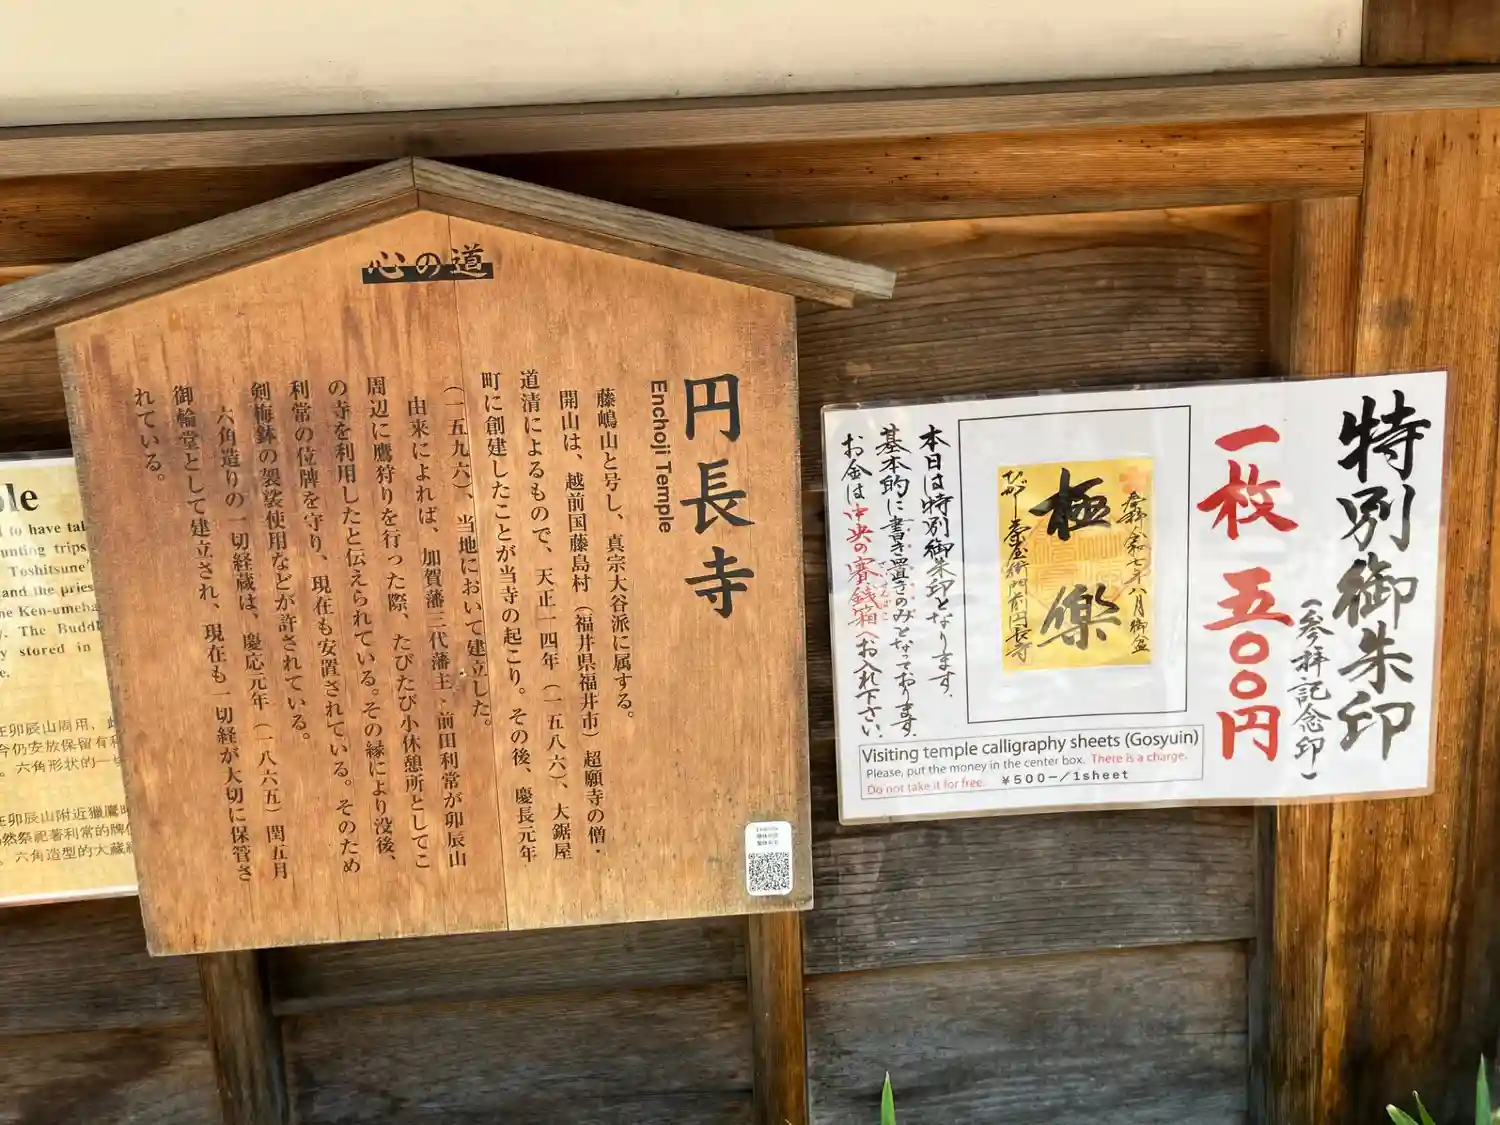 心の道
円長寺
Enchoji Temple
藤嶋山と号し、真宗大谷派に属する。
開山は、越前国藤島村（福井県福井市）超願寺の僧・
道清によるもので、天正一四年（一五八六）、大鋸屋
町に創建したことが当寺の起こり。その後、慶長元年
（一五九六）、当地において建立した。
由来によれば、加賀藩三代藩主・前田利常が卯辰山
周辺に鷹狩りを行った際、たびたび小休憩所としてこ
の寺を利用したと伝えられている。その縁により没後、
利常の位牌を守り、現在も安置されている。そのため
剣梅鉢の袈裟使用などが許されている。
六角造りの一切経蔵は、慶応元年（一八六五）閏五月
御輪堂として建立され、現在も一切経が大切に保管さ
れている。
ple
to have tal
unting trips
Toshitsune'
and the pries
ne Ken-umeba
y. The Buddh
y stored in
e.
在卯辰山周围，
今仍安放保留有利
。六角形状的一切
在卯辰山附近獵鷹時
仍然祭祀著利常的牌位
。六角造型的大藏經
特別御朱印
（参拝記念印）
一枚 五〇〇円
奉拝 令和七年八月 御盆
極
楽
ひがし茶屋街門前円長寺
本日は特別御朱印となります.
基本的に書き置きのみとなっております.
お金は中央の賽銭箱へお入れ下さい.
さいせんばこ
Visiting temple calligraphy sheets (Gosyuin)
Please, put the money in the center box. There is a charge.
Do not take it for free. ￥500−/1sheet